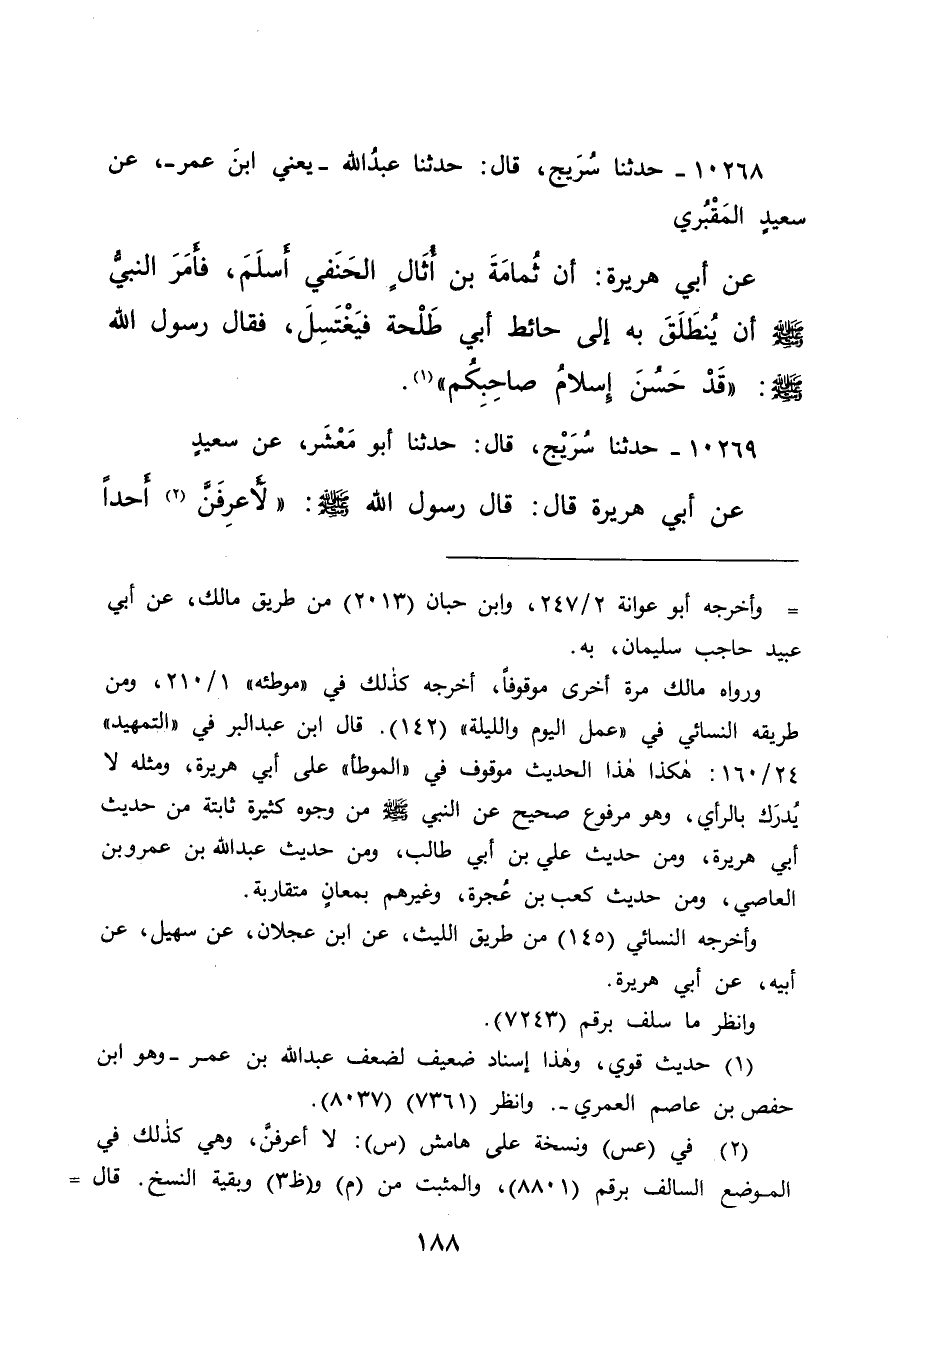 ١٠٢٦٨ ـ حدثنا سُرَيج، قال: حدثنا عبدُالله ـ يعني ابنَ عمر ـ، عن
سعيدٍ المَقْبُري
عن أبي هريرة: أن ثُمامَةَ بن أُثَالٍ الحَنَفي أَسلَمَ، فأَمَرَ النبيُّ
ﷺ أن يُنطَلَقَ به إلى حائط أبي طَلْحة فيَغْتَسِلَ، فقال رسول الله
ﷺ: «قَدْ حَسُنَ إِسلامُ صاحِبِكُم»(١).
١٠٢٦٩ ـ حدثنا سُرَيْج، قال: حدثنا أبو مَعْشَر، عن سعيدٍ
عن أبي هريرة قال: قال رسول الله ﷺ: «لَأَعرِفَنَّ (٢) أَحداً
= وأخرجه أبو عوانة ٢٤٧/٢، وابن حبان (٢٠١٣) من طريق مالك، عن أبي
عبيد حاجب سليمان، به.
ورواه مالك مرة أخرى موقوفاً، أخرجه كذٰلك في «موطئه» ٢١٠/١، ومن
طريقه النسائي في «عمل اليوم والليلة» (١٤٢). قال ابن عبدالبر في «التمهيد»
١٦٠/٢٤: هٰكذا هٰذا الحديث موقوف في «الموطأ» على أبي هريرة، ومثله لا
يُدرَك بالرأي، وهو مرفوع صحيح عن النبي ﷺ من وجوه كثيرة ثابتة من حديث
أبي هريرة، ومن حديث علي بن أبي طالب، ومن حديث عبدالله بن عمرو بن
العاصي، ومن حديث كعب بن عُجرة، وغيرهم بمعانٍ متقاربة.
وأخرجه النسائي (١٤٥) من طريق الليث، عن ابن عجلان، عن سهيل، عن
أبيه، عن أبي هريرة.
وانظر ما سلف برقم (٧٢٤٣).
(١) حديث قوي، وهٰذا إسناد ضعيف لضعف عبدالله بن عمـر ـ وهو ابن
حفص بن عاصم العمري ـ. وانظر (٧٣٦١) (٨٠٣٧).
(٢) في (عس) ونسخة على هامش (س): لا أعرفنَّ، وهي كذٰلك في
المـوضع السالف برقم (٨٨٠١)، والمثبت من (م) و(ظ٣) وبقية النسخ. قال =
١٨٨